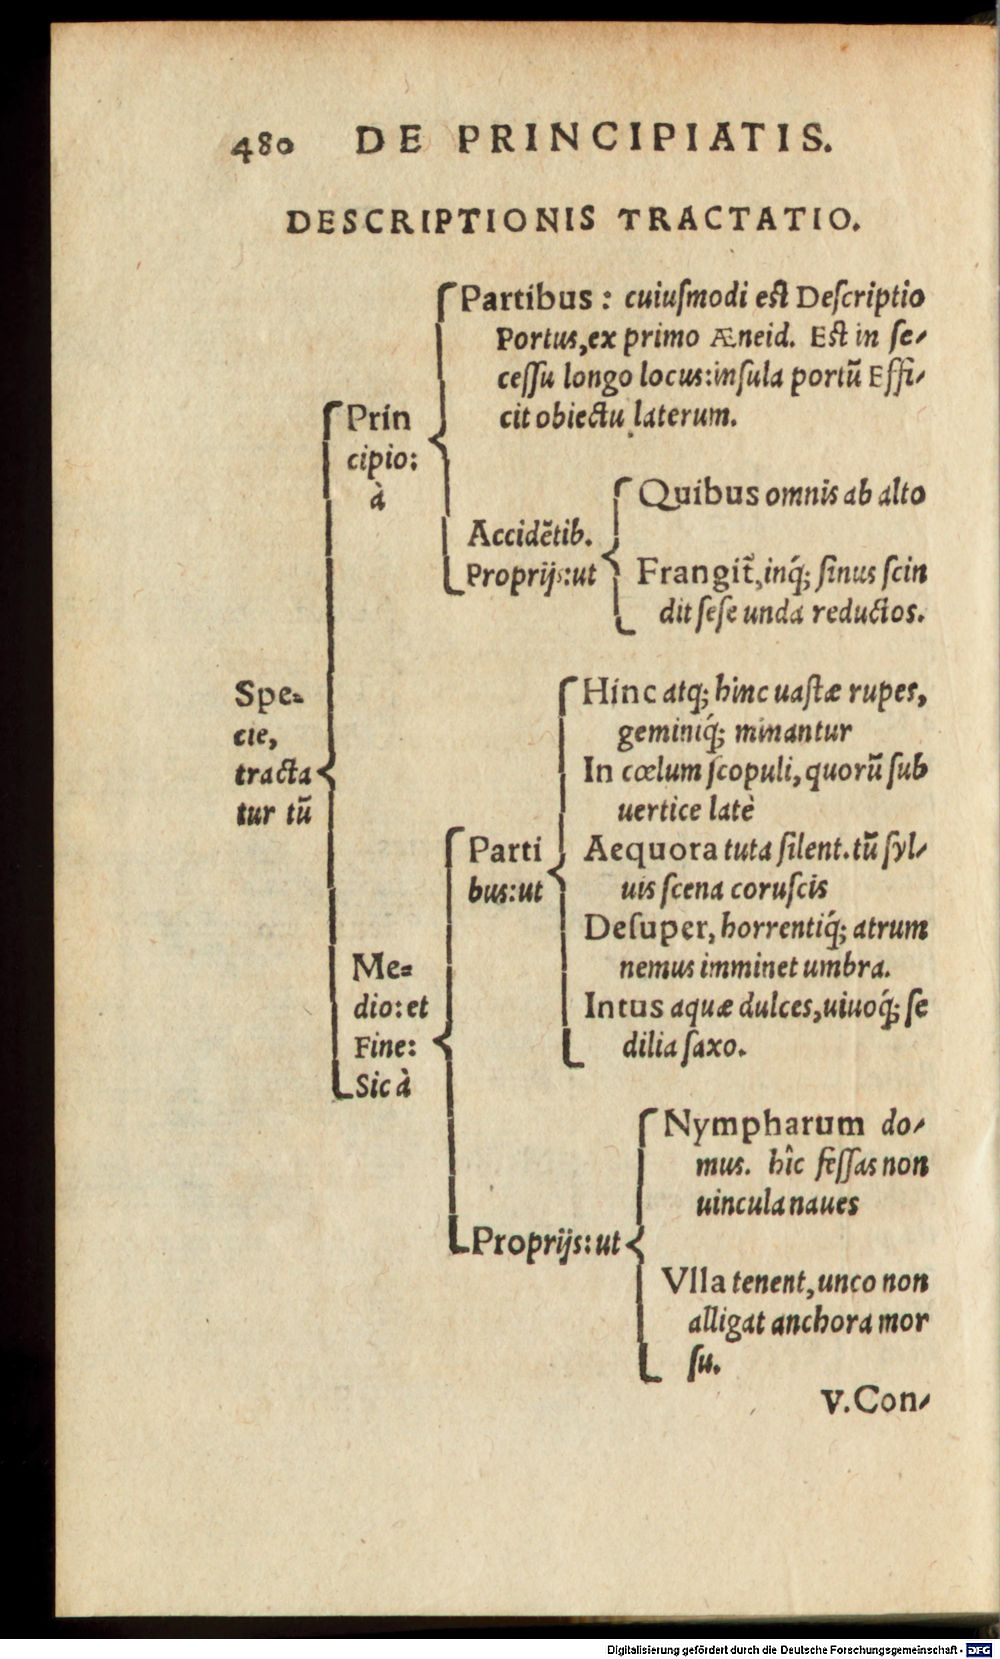 480 DE PRINCIPIATIS.
DESCRIPTIONIS TRACTATIO.
Spe-
cie,
tracta
tur tū
Prin
cipio:
à
Partibus: cuiuſmodi eſt Deſcriptio
Portus, ex primo Æneid. Eſt in ſe-
ceſſu longo locus: inſula portū Effi-
cit obiectu laterum.
Accidētib.
Proprijs: ut
Quibus omnis ab alto
Frangit̃, inq́; ſinus ſcin
dit ſeſe unda reductos.
Me-
dio: et
Fine:
Sic à
Parti
bus: ut
Hinc atq; hinc uaſtæ rupes,
geminiq́; minantur
In cœlum ſcopuli, quorū ſub
uertice latè
Aequora tuta ſilent. tū ſyl-
uis ſcena coruſcis
Deſuper, horrentiq́; atrum
nemus imminet umbra.
Intus aquæ dulces, uiuoq́; ſe
dilia ſaxo.
Proprijs: ut
Nympharum do-
mus. hîc feſſas non
uincula naues
Vlla tenent, unco non
alligat anchora mor
ſu.
V. Con-
Digitalisierung gefördert durch die Deutsche Forschungsgemeinschaft - DFG